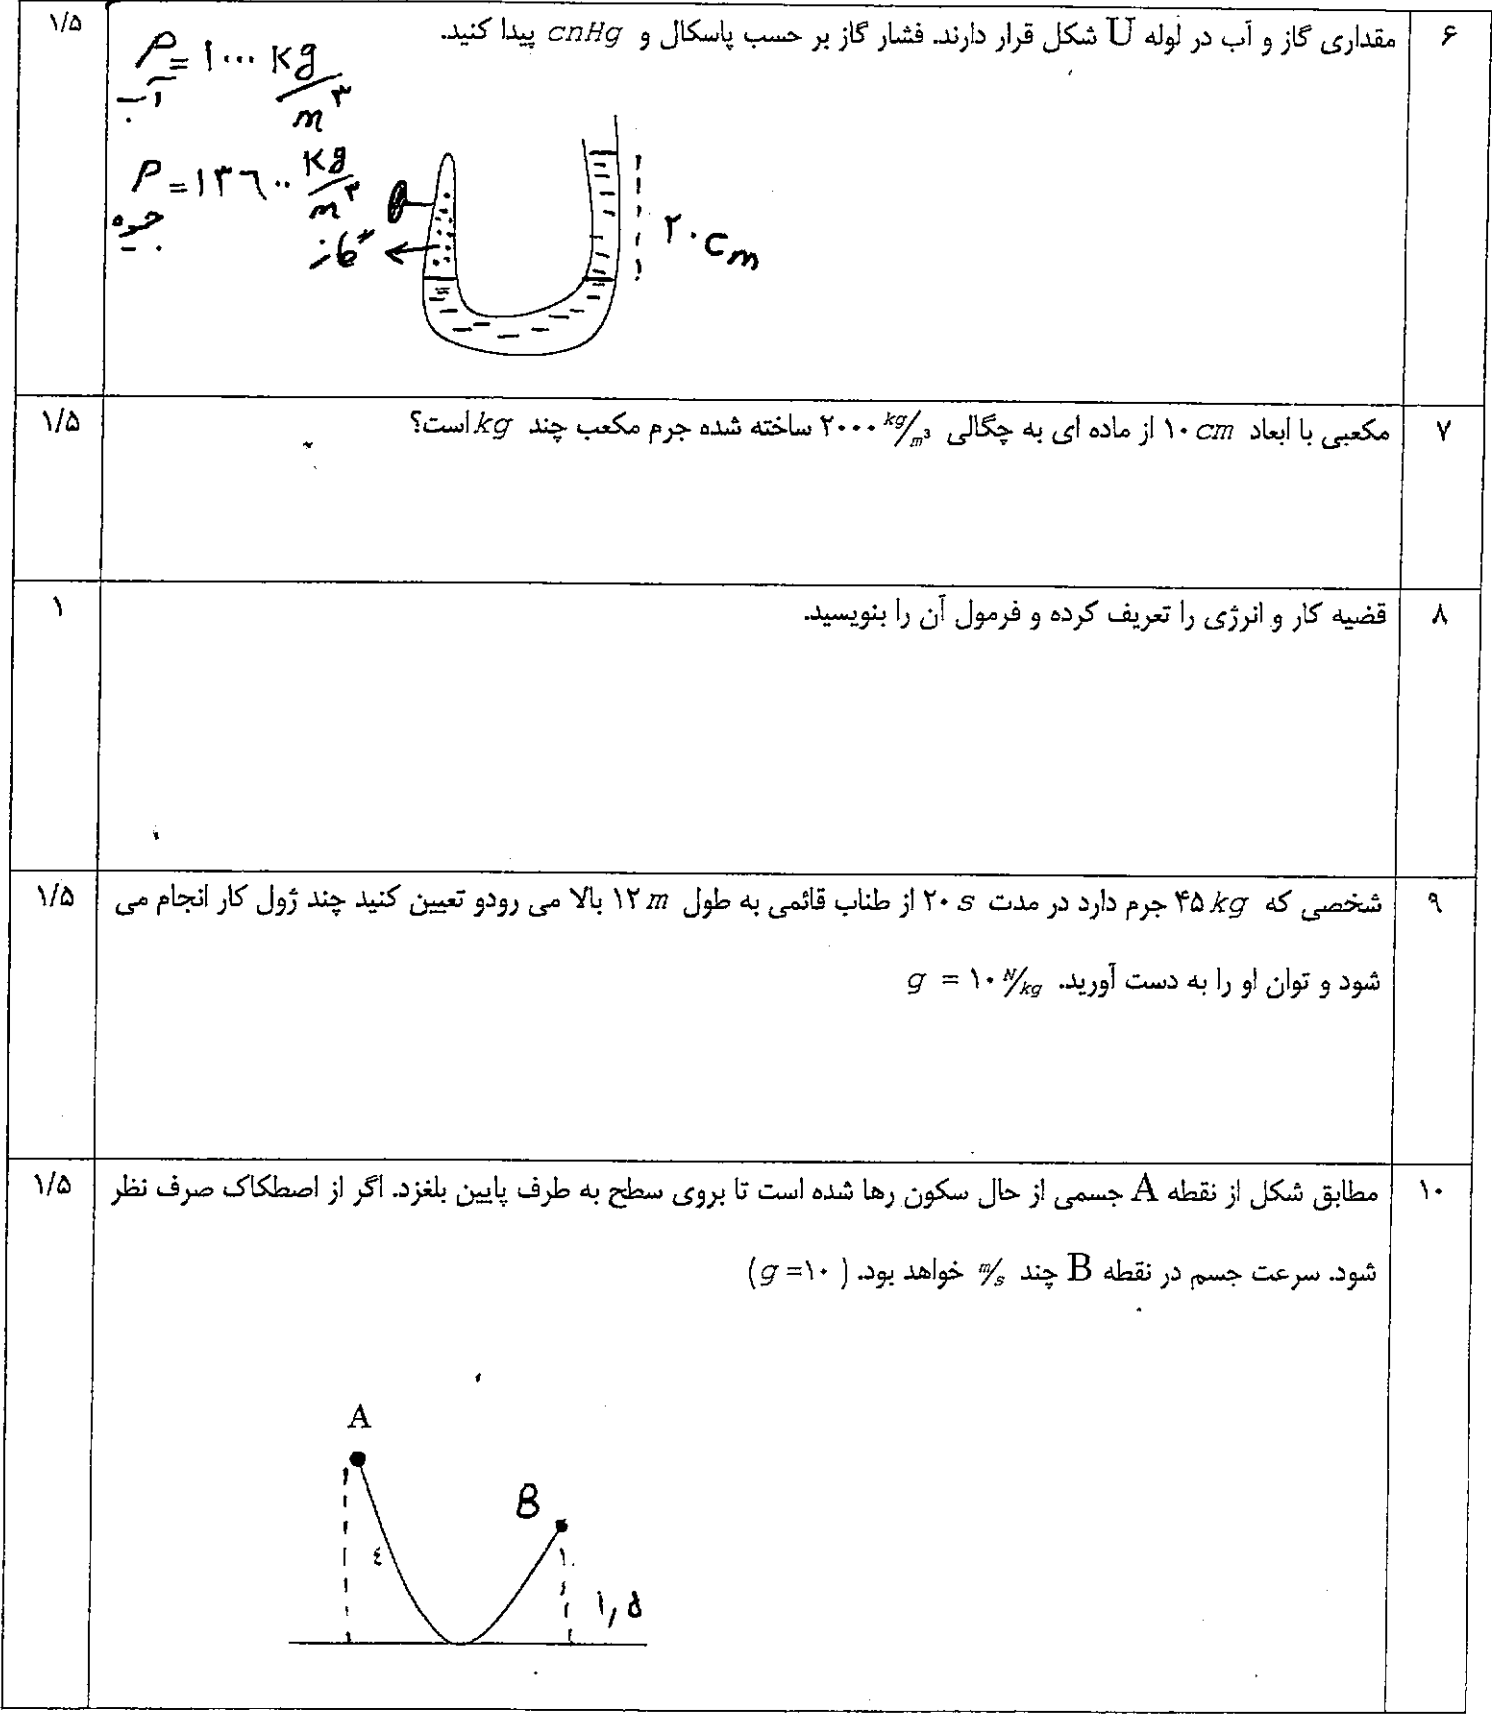 ۶
مقداری گاز و آب در لوله U شکل قرار دارند. فشار گاز بر حسب پاسکال و cnHg پیدا کنید.
۱/۵
ρ = ۱۰۰۰ kg/m۳
آب
ρ = ۱۳۶۰۰ kg/m۳
جیوه
گاز
۲۰ cm
۷
مکعبی با ابعاد ۱۰ cm از ماده ای به چگالی ۲۰۰۰ kg/m³ ساخته شده جرم مکعب چند kg است؟
۱/۵
۸
قضیه کار و انرژی را تعریف کرده و فرمول آن را بنویسید.
۱
۹
شخصی که ۴۵ kg جرم دارد در مدت ۲۰ s از طناب قائمی به طول ۱۲ m بالا می رودو تعیین کنید چند ژول کار انجام می
۱/۵
شود و توان او را به دست آورید. g = ۱۰ N/kg
۱۰
مطابق شکل از نقطه A جسمی از حال سکون رها شده است تا بروی سطح به طرف پایین بلغزد. اگر از اصطکاک صرف نظر
۱/۵
شود. سرعت جسم در نقطه B چند m/s خواهد بود. (g =۱۰)
A
B
٤
۱,۵